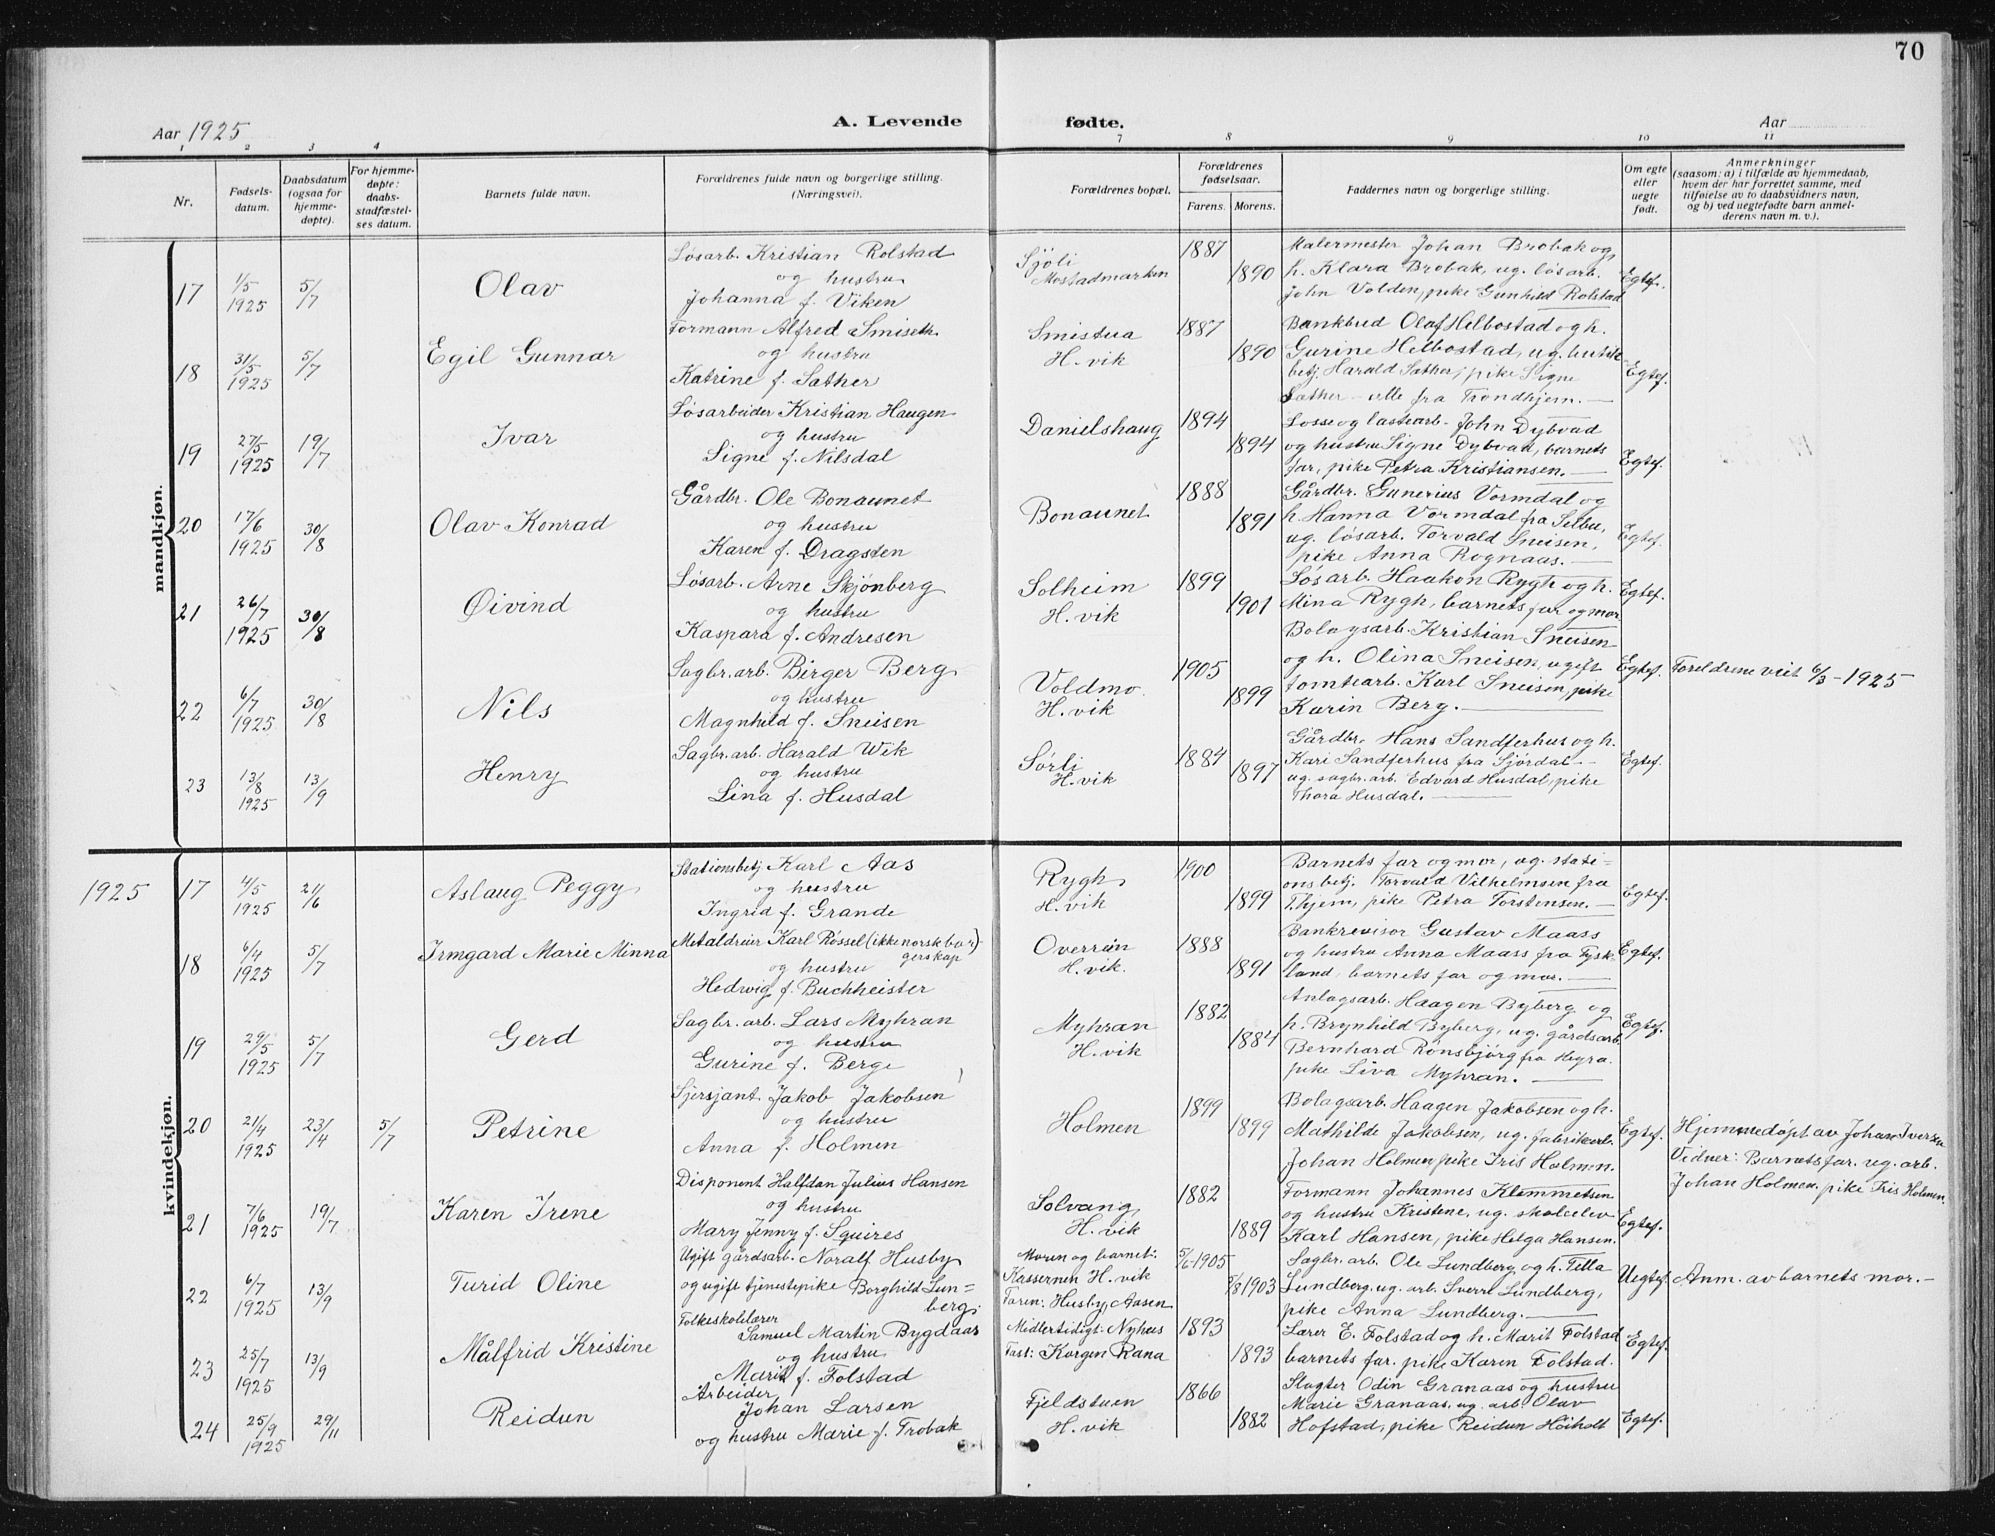 70
Aar 1925
A. Levende fødte.
Aar
1 2 3 4 7 8 9 10 11
Nr.
Fødsels-
datum.
Daabsdatum
(ogsaa for
hjemme-
døpte).
For hjemme-
døpte:
daabs-
stadfæstel-
ses datum.
Barnets fulde navn.
Forældrenes fulde navn og borgerlige stilling.
(Næringsvei).
Forældrenes bopæl.
Forældrenes
fødselsaar.
Farens. Morens.
Faddernes navn og borgerlige stilling.
Om egte
eller
uegte
født.
Anmerkninger
(saasom: a) i tilfælde av hjemmedaab,
hvem der har forrettet samme, med
tilføielse av to daabsvidners navn,
og b) ved uegtefødte barn anmel-
derens navn m. v.).
mandkjøn.
17
1/5
1925
5/7
Olav
Løsarb. Kristian Rolstad
og hustru
Johanna f. Viken
Sjöli
Mostadmarken
1887
1890
Malermester Johan Brobak og
h. Klara Brobak, ug. løsarb.
John Volden, pike Gunhild Rolstad
Egtef.
18
31/5
1925
5/7
Egil Gunnar
Formann Alfred Smiseth
og hustru
Katrine f. Sæther
Smistua
H. vik
1887
1890
Bankbud Olaf Helbostad og h.
Gurine Helbostad, ug. butik-
betj. Harald Sæther, pike Signe
Sæther - alle fra Trondhjem. —
Egtef.
19
27/5
1925
19/7
Ivar
Løsarbeider Kristian Haugen
og hustru
Signe f. Nilsdal
Danielshaug
1894
1894
Losse og lastearb. John Dybvad
og hustru Signe Dybvad, barnets
far, pike Petra Kristiansen. —
Egtef.
20
17/6
1925
30/8
Olav Konrad
Gårdbr. Ole Bonaunet
og hustru
Karen f. Dragsten
Bonaunet
1888
1891
Gårdbr. Gunerius Vormdal og
h. Hanna Vormdal fra Selbu,
ug. løsarb. Torvald Sneisen,
pike Anna Rognaas. —
Egtef.
21
26/7
1925
30/8
Øivind
Løsarb. Arne Skjönberg
og hustru
Kaspara f. Andresen
Solheim
H. vik
1899
1901
Løsarb. Haakon Rygh og h.
Mina Rygh, barnets far og mor
Egtef.
22
6/7
1925
30/8
Nils
Sagbr. arb. Birger Berg
og hustru
Magnhild f. Sneisen
Voldmo
H. vik
1905
1899
Bolagsarb. Kristian Sneisen
og h. Olina Sneisen, ugift
tomtearb. Karl Sneisen, pike
Karin Berg. —
Egtef.
Foreldrene viet 6/3 - 1925
23
13/8
1925
13/9
Henry
Sagbr. arb. Harald Wik
og hustru
Lina f. Husdal
Sørli
H. vik
1884
1897
Gårdbr. Hans Sandferhus og h.
Kari Sandferhus fra Sjördal -
ug. sagbr. arb. Edvard Husdal, pike
Thora Husdal. —
Egtef.
1925
kvindekjøn.
17
4/5
1925
21/6
Aslaug Peggy
Stationsbetj Karl Aas
og hustru
Ingrid f. Grande
Rygh
H. vik
1900
1899
Barnets far og mor, ug. stati-
onsbetj. Torvald Vilhelmsen fra
Thjem, pike Petra Torstensen. —
Egtef.
18
6/4
1925
5/7
Irmgard Marie Minna
Metaldreier Karl Røssel (ikke norsk bor-
gerskap)
og hustru
Hedwig f. Buchheister
Overrön
H. vik.
1888
1891
Bankrevisor Gustav Maass
og hustru Anna Maass fra Tysk-
land, barnets far og mor. —
Egtef.
19
29/5
1925
5/7
Gerd
Sagbr. arb. Lars Myhran
og hustru
Gurine f. Berge
Myhran
H. vik
1882
1884
Anlagsarb. Haagen Byberg og
h. Brynhild Byberg, ug. gårdsarb.
Bernhard Rönsbjörg fra Hegra.
pike Liva Myhran. —
Egtef.
20
21/4
1925
23/4
5/7
Petrine
Sjersjant Jakob Jakobsen
og hustru
Anna f. Holmen
Holmen
1899
1899
Bolagsarb. Haagen Jakobsen og h.
Mathilde Jakobsen, ug. fabrikarb.
Johan Holmen, pike Iris Holmen.
Egtef.
Hjemmedöpt av Johan Iversen
Vidner: Barnets far. ug. arb.
Johan Holmen. pike Iris Holmen.
21
7/6
1925
19/7
Karen Irene
Disponent Halfdan Julius Hansen
og hustru
Mary Jenny f. Squires
Solvang
H. vik
1882
1889
Formann Johannes Klemmetsen
og hustru Kristene, ug. skoleelev
Karl Hansen, pike Helga Hansen.
Egtef.
22
6/7
1925
13/9
Turid Oline
Ugift gårdsarb. Noralf Husby
og ugift tjenestepike Borghild Lun-
berg
Moren og barnet:
Kassernen H. vik
Faren: Husby, Aasen
5/6 1905
7/8 1903
Sagbr. arb. Ole Lundberg og h. Tilla
Lundberg, ug. arb. Sverre Lundberg,
pike Anna Lundberg. —
Uegtef.
Anm. av barnets mor. —
23
25/7
1925
13/9
Målfrid Kristine
Folkeskolelærer
Samuel Martin Bygdaas
og hustru
Marit f. Folstad
Midlertidigt: Nyhus
Fast: Korgen Rana
1893
1893
Lærer E. Folstad og h. Marit Folstad
barnets far. pike Karen Folstad.
Egtef.
24
25/9
1925
29/11
Reidun
Arbeider
Johan Larsen
og hustru Marie f. Trobak
Fjeldstuen
H. vik
1866
1882
Slagter Odin Granaas og hustru
Marie Granaas. ug. arb Olav
Hofstad, pike Reidun Höiholt
Egtef.